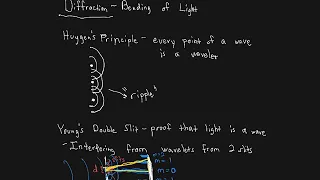 Diffraction - Bending of Light
Huygen's Principle - every point of a wave
is a wavelet
"ripples"
Young's Double Slit - proof that light is a wave
- Interfering from wavelets from 2 slits
d
m=1
m=0
m=1